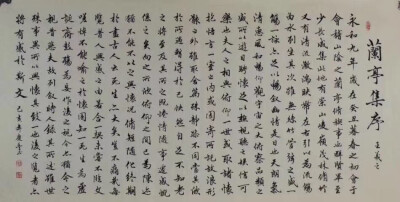 蘭亭集序 王羲之
永和九年歲在癸丑暮春之初會于
會稽山陰之蘭亭修禊事也群賢畢至
少長咸集此地有崇山峻嶺茂林修竹
又有清流激湍映帶左右引以為流觴
曲水列坐其次雖無絲竹管弦之盛一
觴一詠亦足以暢敘幽情是日也天朗氣
清惠風和暢仰觀宇宙之大俯察品類之
盛所以遊目騁懷足以極視聽之娛信可
樂也夫人之相與俯仰一世或取諸懷
抱悟言一室之內或因寄所託放浪形
骸之外雖趣舍萬殊靜躁不同當其欣
於所遇暫得於己快然自足不知老
之將至及其所之既倦情隨事遷感慨
係之矣向之所欣俯仰之間已為陳迹
猶不能不以之興懷況修短隨化終期
於盡古人云死生亦大矣豈不痛哉每
覽昔人興感之由若合一契未嘗不臨文
嗟悼不能喻之於懷固知一死生為虛
誕齊彭殤為妄作後之視今亦猶今之
視昔悲夫故列敘時人錄其所述雖世
殊事異所以興懷其致一也後之覽者亦
將有感於斯文